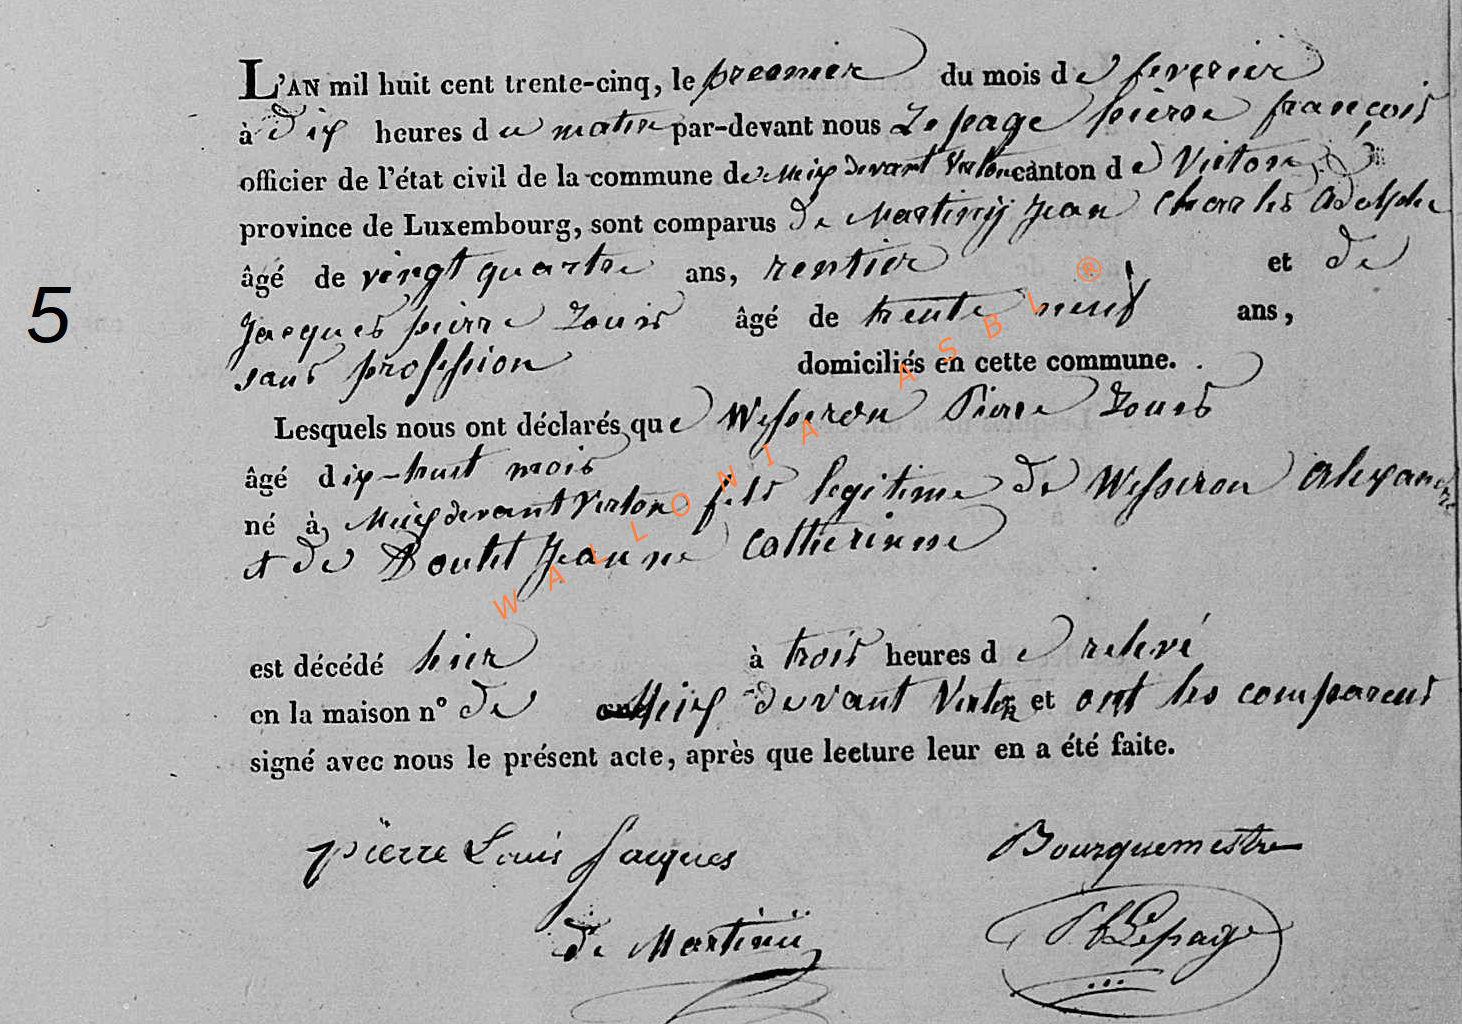 L'AN mil huit cent trente-cinq, le premier du mois de fevrier
à dix heures du matin par-devant nous Lepage pierre françois
officier de l'état civil de la commune de Meix devant Virton canton de Virton
province de Luxembourg, sont comparus de Martiny Jean Charles Adolphe
âgé de vingt quatre ans, rentier et de
Jacques pierre Louis âgé de trente neuf ans,
5
sans profession domiciliés en cette commune.
Lesquels nous ont déclarés que Wesseron Pierre Louis
âgé dix-huit mois
né à Meix devant Virton fils legitime de Wesseron alexandre
et de Doutet Jeanne Catherinne
WALLONIA ASBL ®
est décédé hier à trois heures de relevé
en la maison n° de Meix devant Virton et ont les comparens
signé avec nous le présent acte, après que lecture leur en a été faite.
pierre Louis Jacques Bourguemestre
de Martiny PF Lepage